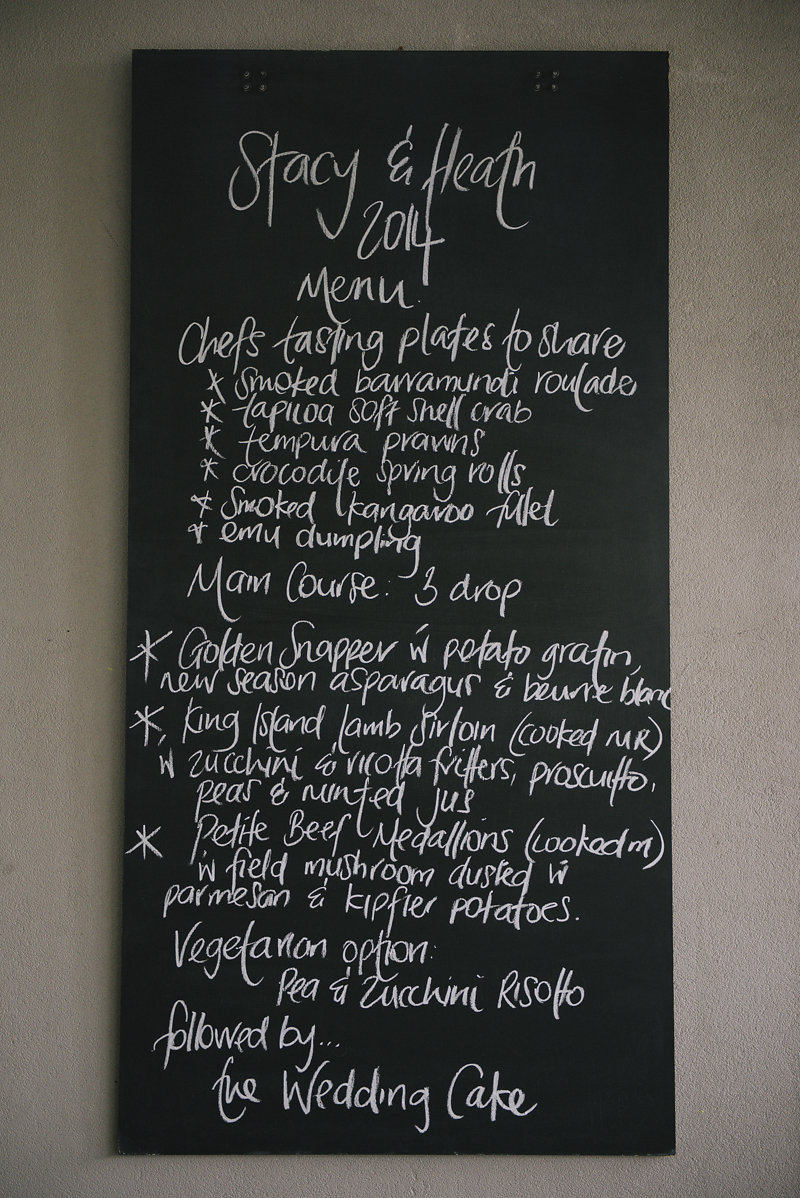 Stacy & Heath
2014
Menu.
Chefs tasting plates to share
* smoked barramundi roulade
* tapicoa soft shell crab
* tempura prawns
* crocodile spring rolls
* smoked kangaroo fillet
* emu dumpling
Main Course: 3 drop
* Golden Snapper w potato gratin,
new season asparagus & beurre blanc
* King Island Lamb Sirloin (cooked MR)
w zucchini & ricotta fritters, proscuitto,
peas & minted jus
* Petite Beef Medallions (cooked m)
w field mushroom dusted w
parmesan & kipfler potatoes.
Vegetarian option:
Pea & Zucchini Risotto
followed by...
the Wedding Cake